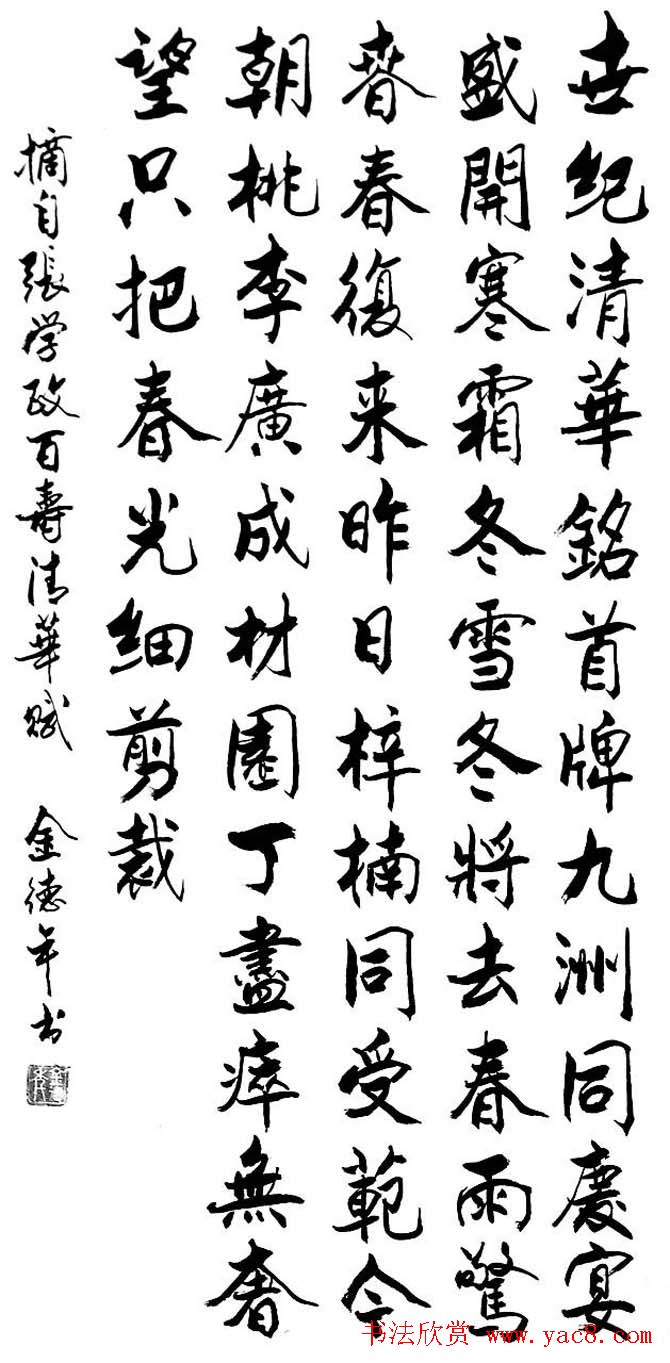 世纪清華銘首牌九洲同慶宴
盛開寒霜冬雪冬將去春雨驚
春春復来昨日梓楠同受範今
朝桃李廣成材園丁盡瘁無奢
望只把春光细剪裁
摘自張学政百壽清華赋 金德年书
书法欣赏 www.yac8.com